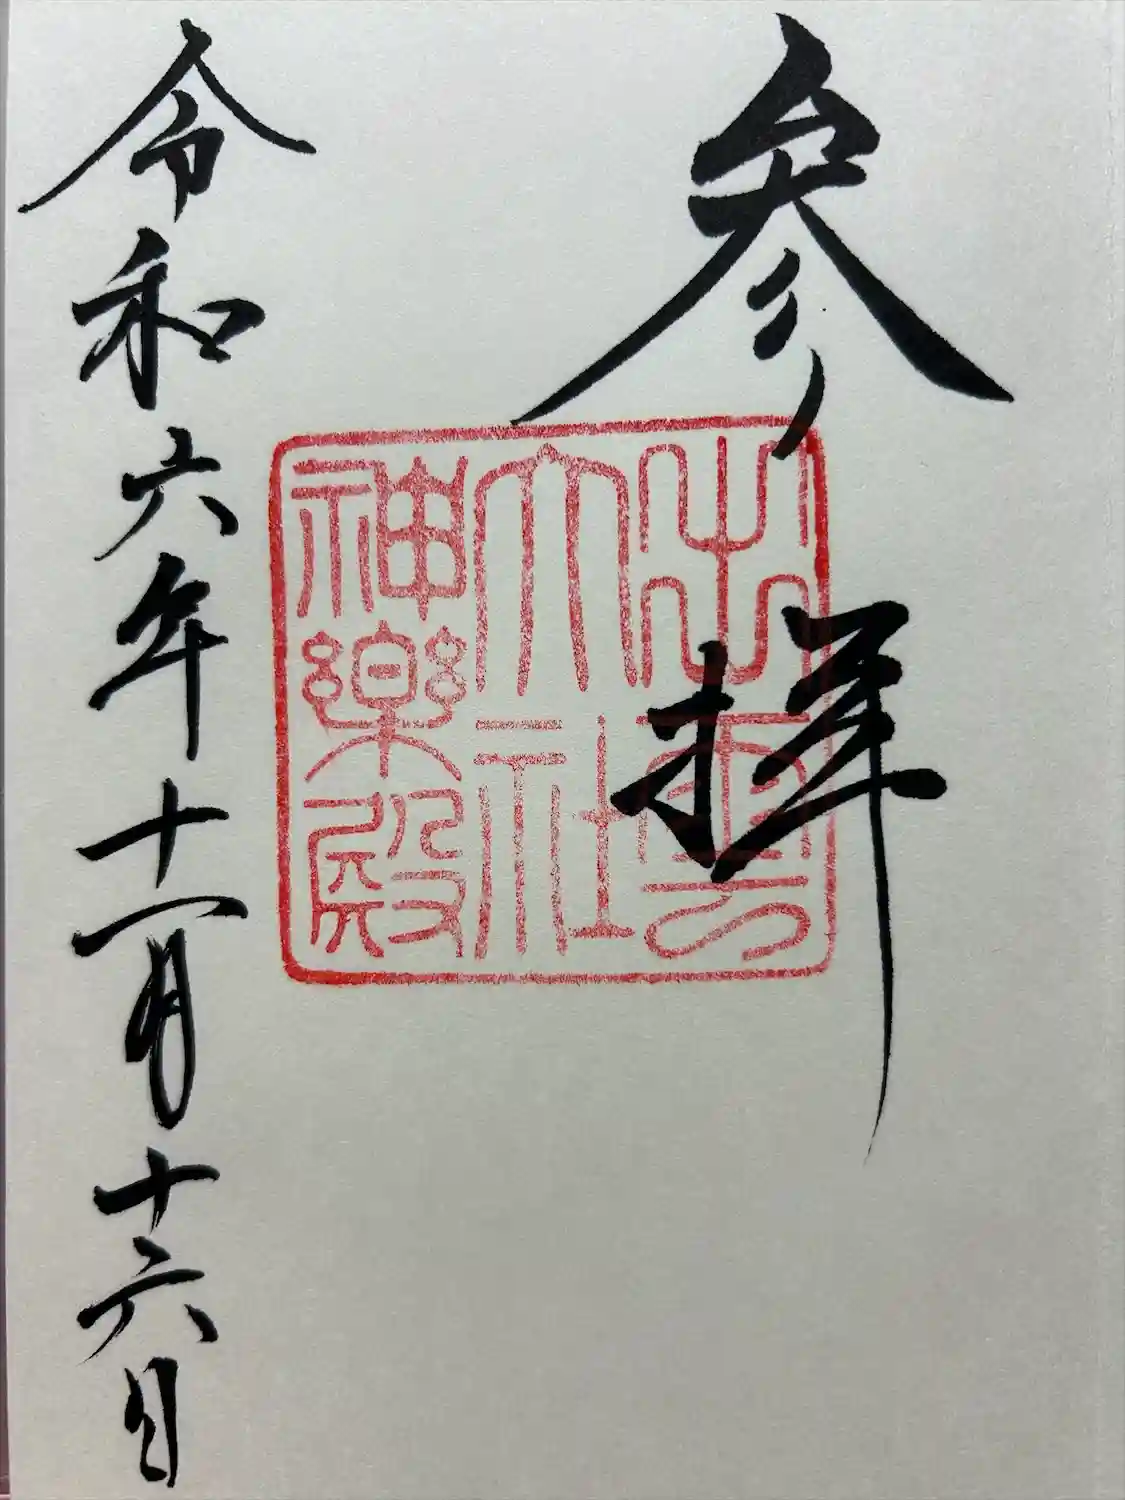 参拝
出雲
大社
神樂殿
令和六年十一月十六日